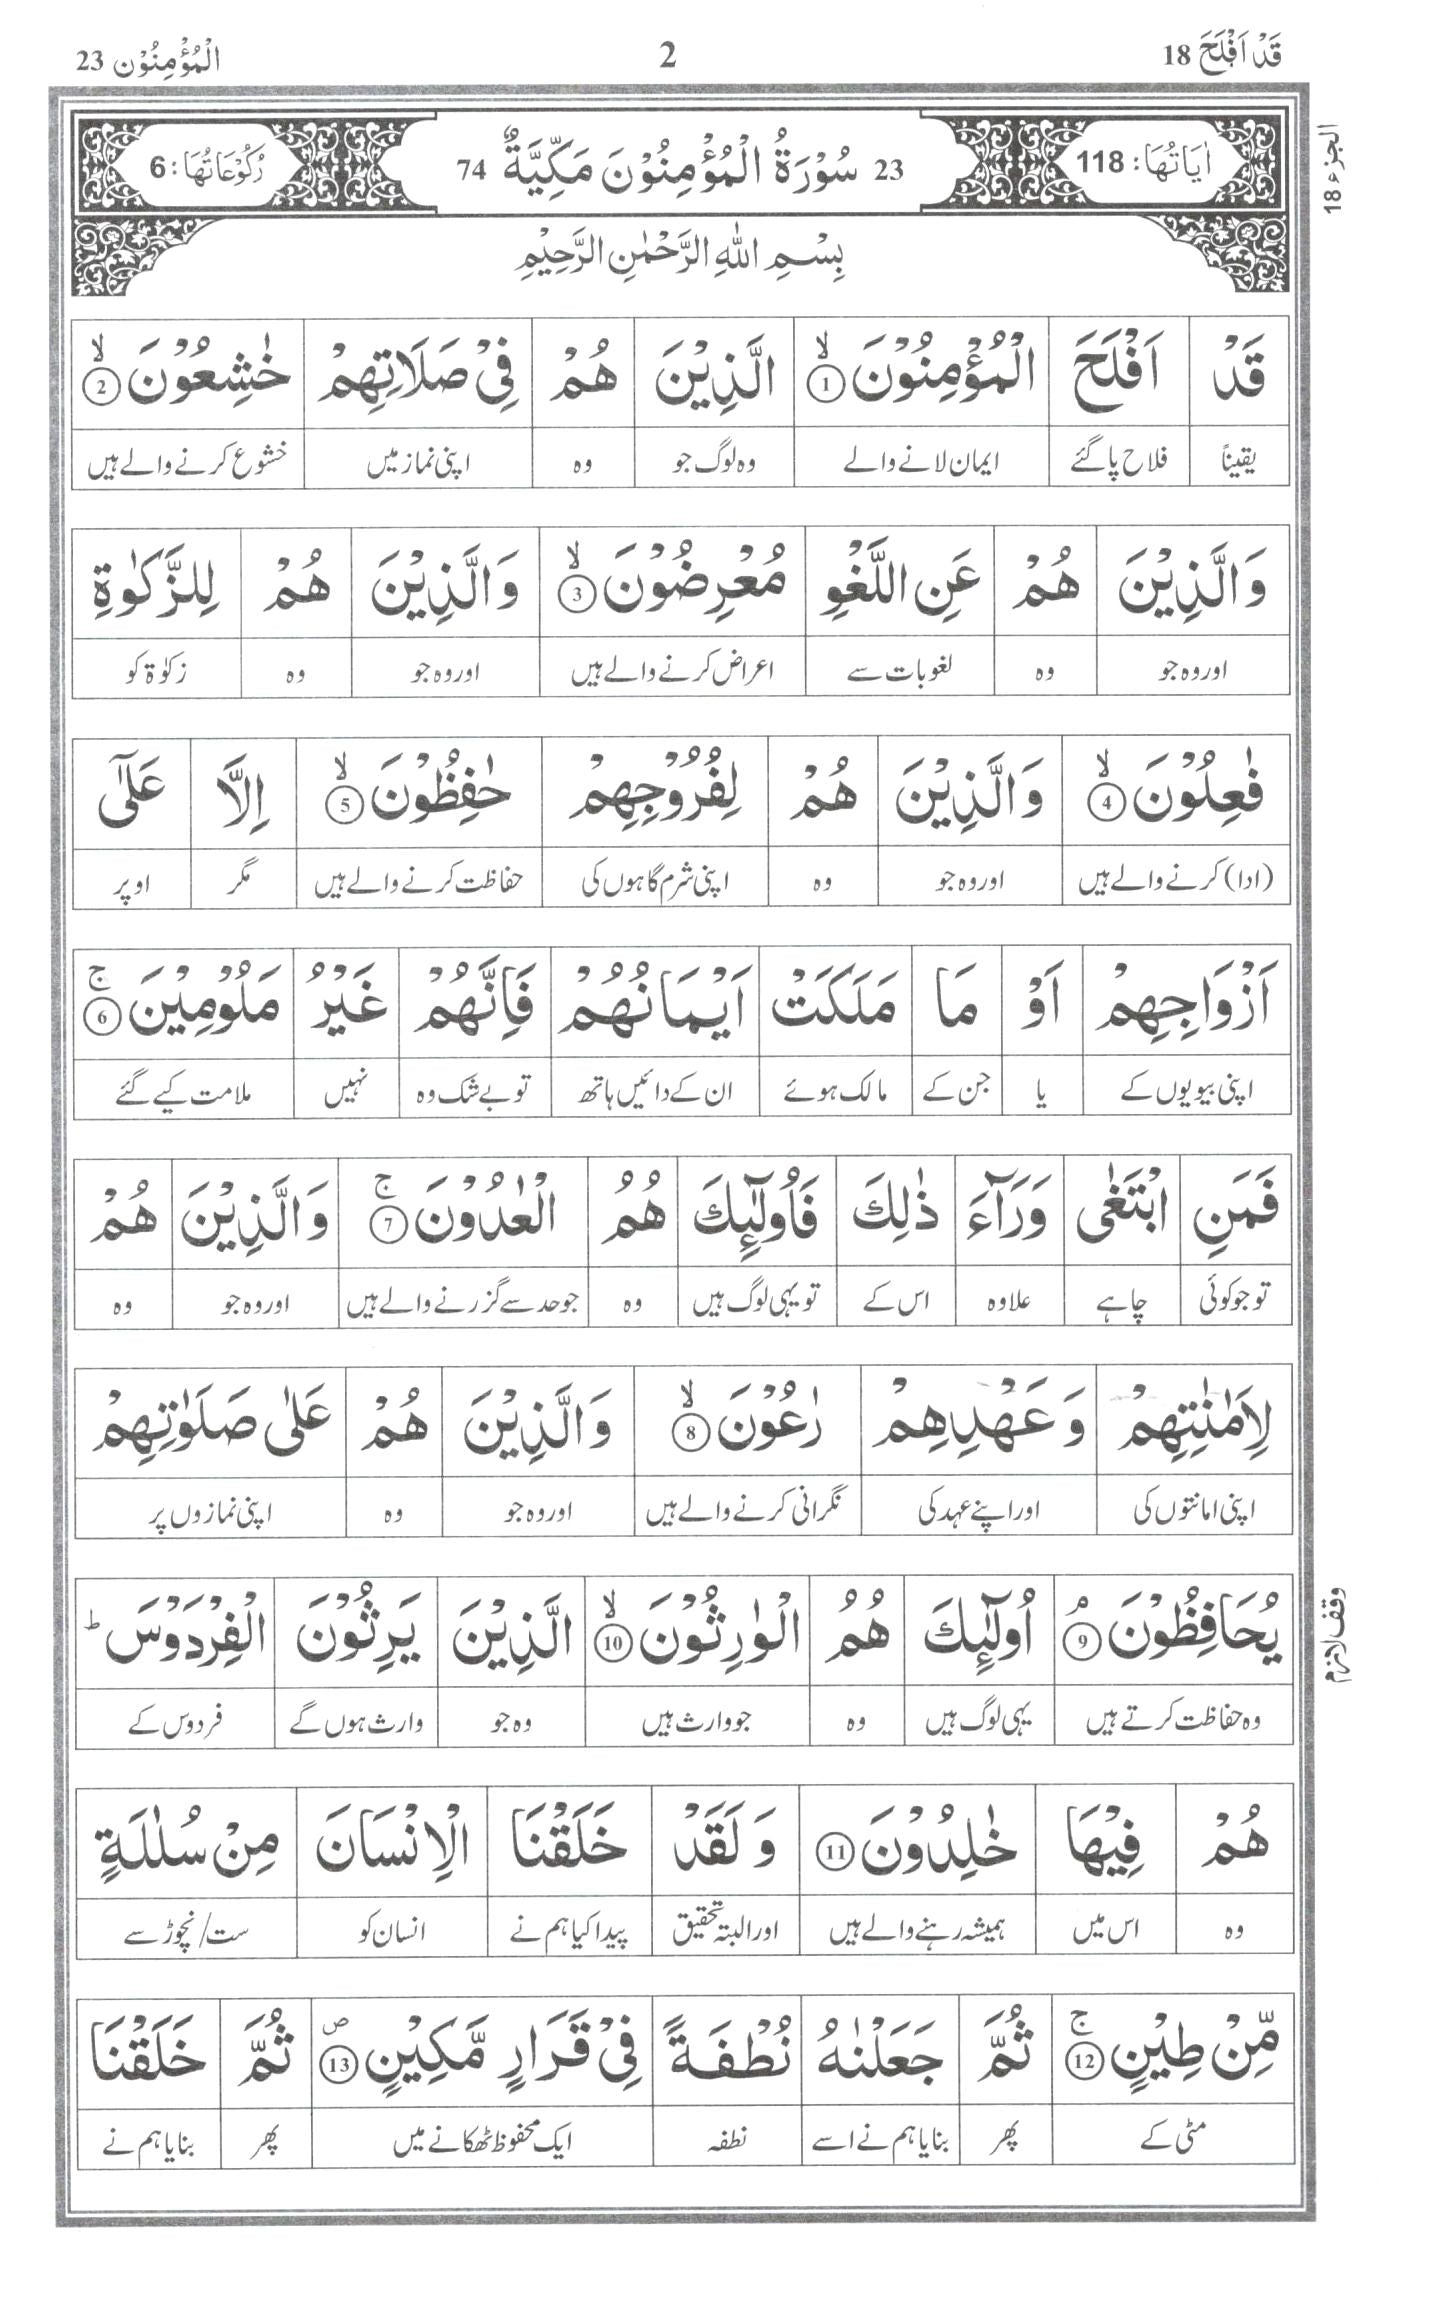 قَدْ اَفْلَحَ 18 2 الْمُؤْمِنُوْن 23
اٰيَاتُهَا: 118 23 سُوْرَةُ الْمُؤْمِنُوْنَ مَكِّيَّةٌ 74 رُكُوْعَاتُهَا: 6
الجزء 18
بِسْمِ اللّٰهِ الرَّحْمٰنِ الرَّحِيْمِ
قَدْ اَفْلَحَ الْمُؤْمِنُوْنَ ۙ1 الَّذِيْنَ هُمْ فِيْ صَلَاتِهِمْ خٰشِعُوْنَ ۙ2
یقیناً فلاح پا گئے ایمان لانے والے وہ لوگ جو وہ اپنی نماز میں خشوع کرنے والے ہیں
وَالَّذِيْنَ هُمْ عَنِ اللَّغْوِ مُعْرِضُوْنَ ۙ3 وَالَّذِيْنَ هُمْ لِلزَّكٰوةِ
اور وہ جو وہ لغو بات سے اعراض کرنے والے ہیں اور وہ جو وہ زکوٰۃ کو
فٰعِلُوْنَ ۙ4 وَالَّذِيْنَ هُمْ لِفُرُوْجِهِمْ حٰفِظُوْنَ ۙ5 اِلَّا عَلٰٓى
(ادا) کرنے والے ہیں اور وہ جو وہ اپنی شرم گاہوں کی حفاظت کرنے والے ہیں مگر اوپر
اَزْوَاجِهِمْ اَوْ مَا مَلَكَتْ اَيْمَانُهُمْ فَاِنَّهُمْ غَيْرُ مَلُوْمِيْنَ ۚ6
اپنی بیویوں کے یا جن کے مالک ہوئے ان کے دائیں ہاتھ تو بے شک وہ نہیں ملامت کیے گئے
فَمَنِ ابْتَغٰى وَرَآءَ ذٰلِكَ فَاُولٰٓئِكَ هُمُ الْعٰدُوْنَ ۚ7 وَالَّذِيْنَ هُمْ
تو جو کوئی چاہے علاوہ اس کے تو یہی لوگ ہیں وہ جو حد سے گزرنے والے ہیں اور وہ جو وہ
لِاَمٰنٰتِهِمْ وَعَهْدِهِمْ رٰعُوْنَ ۙ8 وَالَّذِيْنَ هُمْ عَلٰى صَلَوٰتِهِمْ
اپنی امانتوں کی اور اپنے عہد کی نگرانی کرنے والے ہیں اور وہ جو وہ اپنی نمازوں پر
يُحَافِظُوْنَ ۘ9 اُولٰٓئِكَ هُمُ الْوٰرِثُوْنَ ۙ10 الَّذِيْنَ يَرِثُوْنَ الْفِرْدَوْسَ ؕ
وقف لازم
وہ حفاظت کرتے ہیں یہی لوگ ہیں وہ جو وارث ہیں وہ جو وارث ہوں گے فردوس کے
هُمْ فِيْهَا خٰلِدُوْنَ 11 وَلَقَدْ خَلَقْنَا الْاِنْسَانَ مِنْ سُلٰلَةٍ
وہ اس میں ہمیشہ رہنے والے ہیں اور البتہ تحقیق پیدا کیا ہم نے انسان کو ست/نچوڑ سے
مِّنْ طِيْنٍ ۚ12 ثُمَّ جَعَلْنٰهُ نُطْفَةً فِيْ قَرَارٍ مَّكِيْنٍ ۖ13 ثُمَّ خَلَقْنَا
مٹی کے پھر بنایا ہم نے اسے نطفہ ایک محفوظ ٹھکانے میں پھر بنایا ہم نے